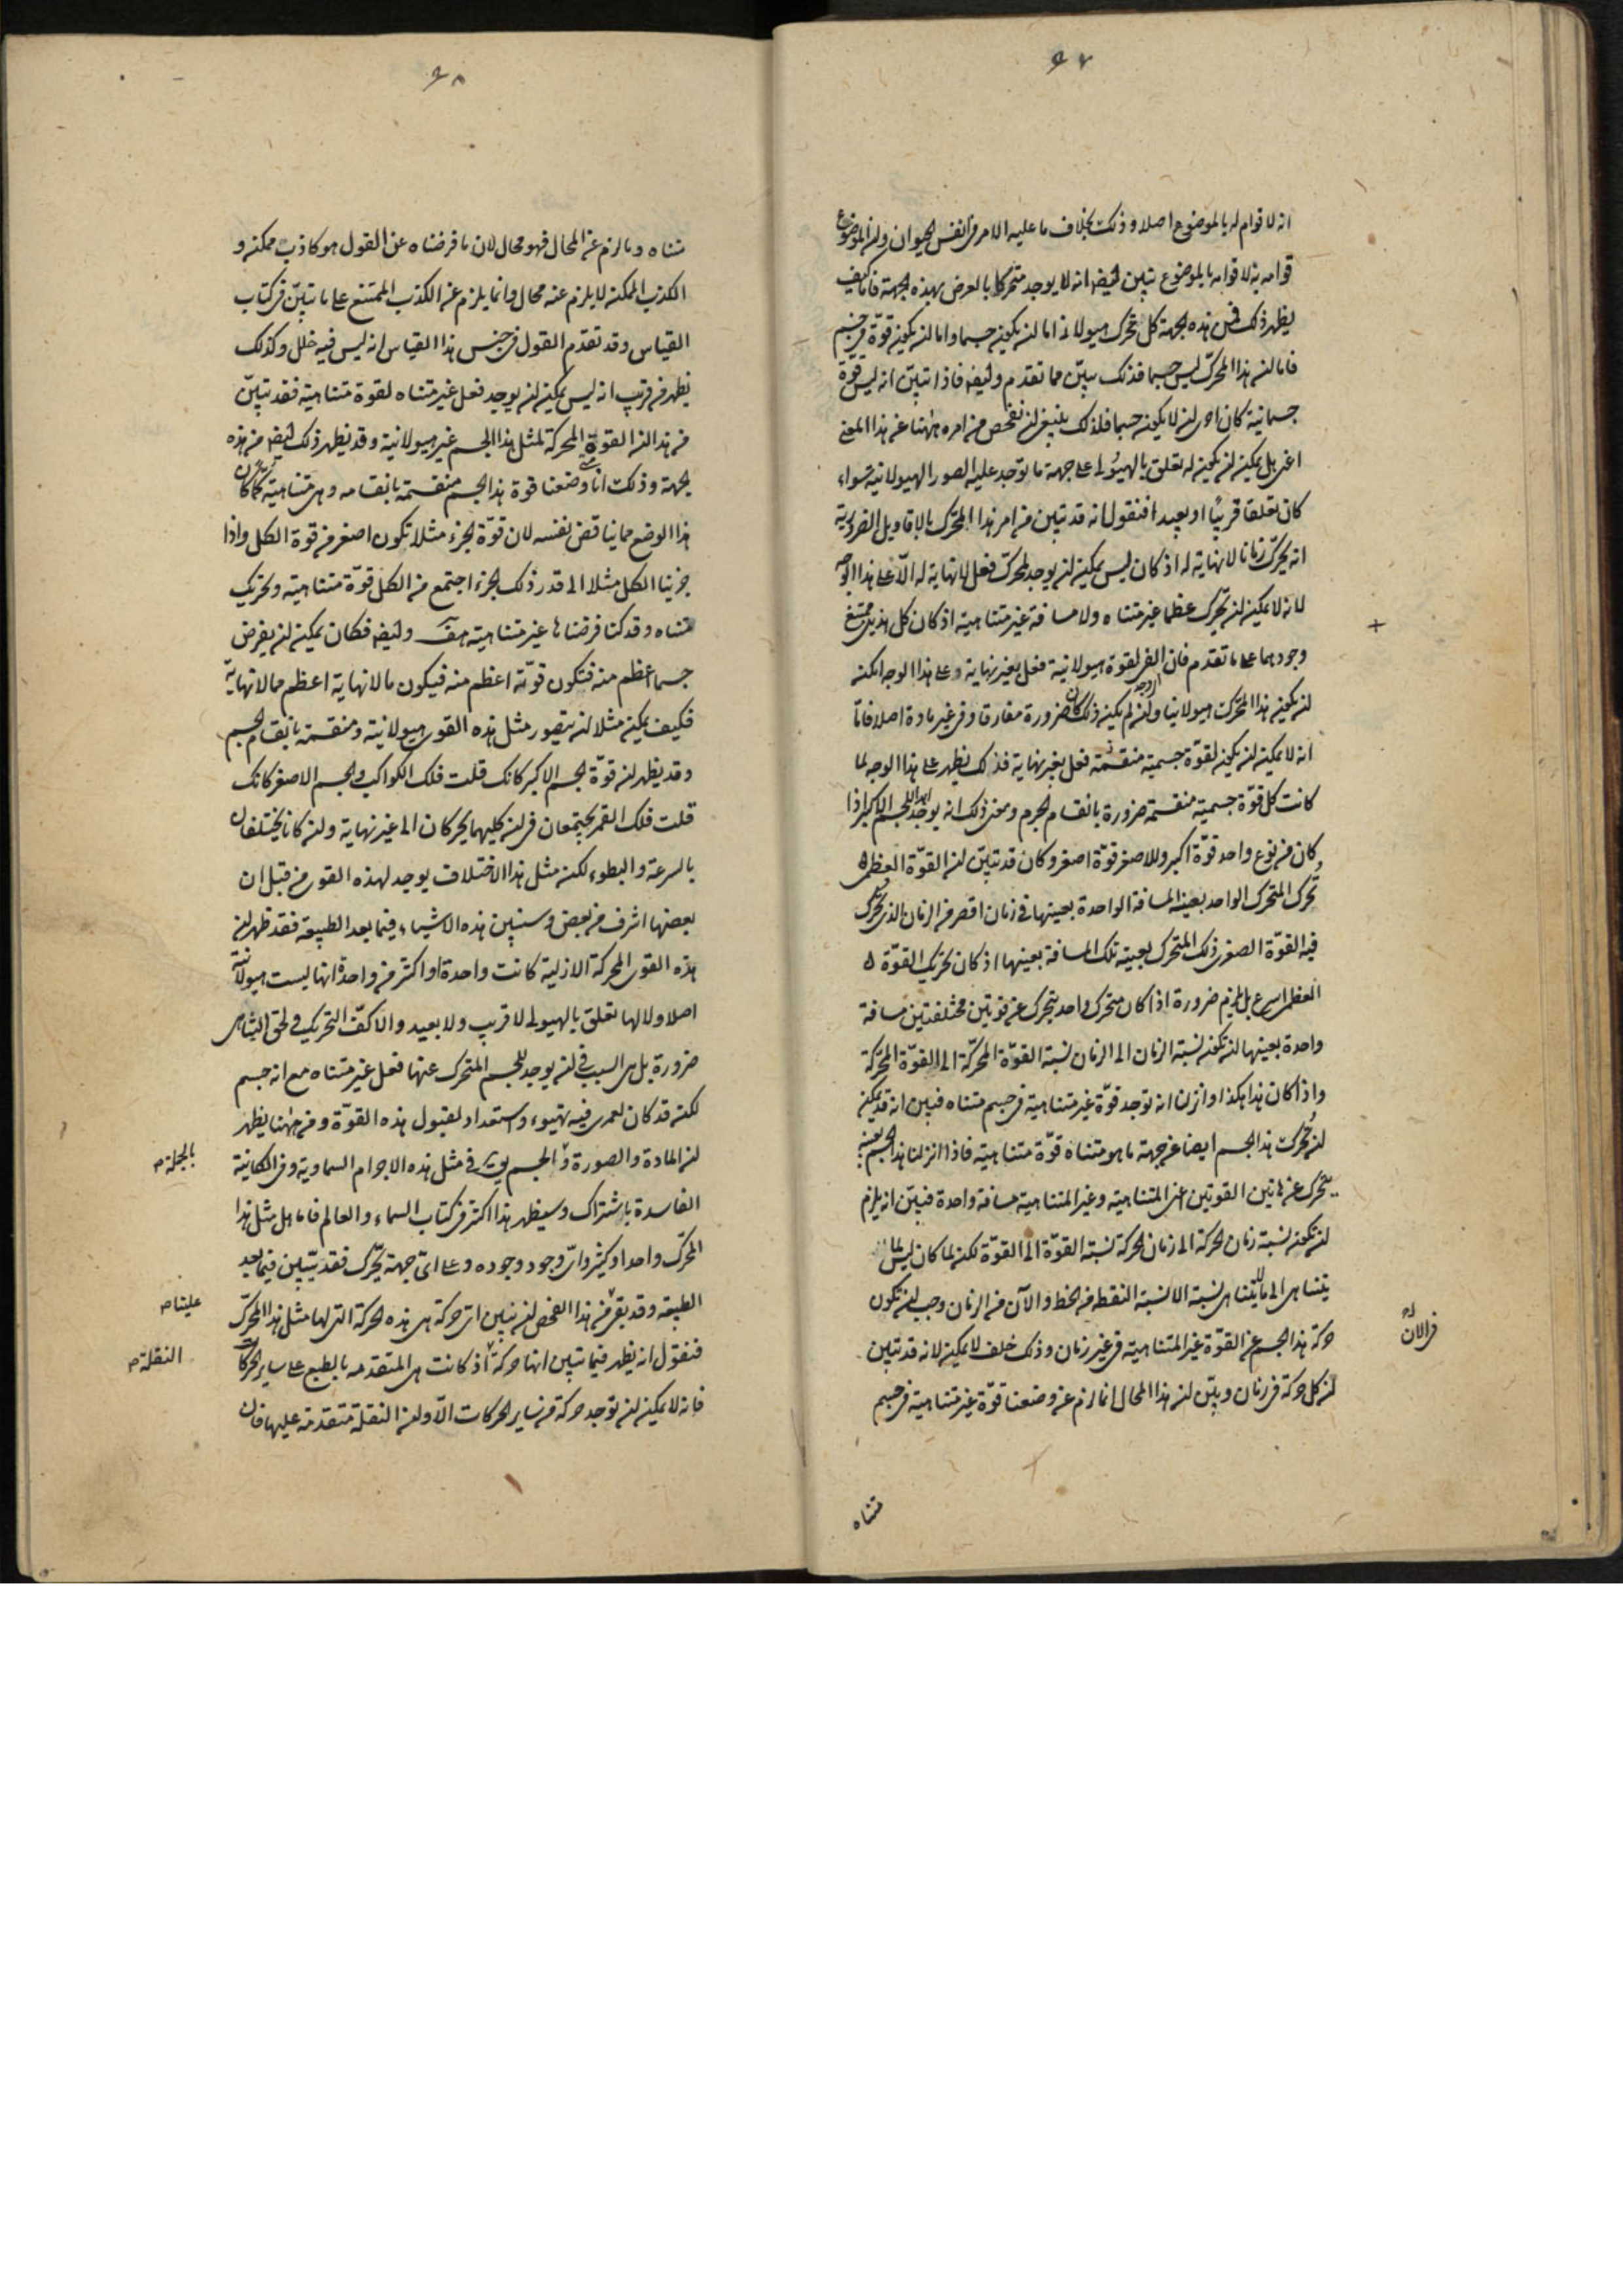 ٩٧
انه لا قوام له بالموضوع اصلا وذلك بخلاف ما عليه الامر في انفس الحيوان ولنه الموضوع
قوامه به لا قوامه بالموضوع تبين ايضا انه لا يوجد متحركا بالعرض بهذه الجهة فاما كيف
يظهر ذلك فمن هذه الجهة كل محرك هيولاني اما لن يكون جسما واما لن يكون قوة في جسم
فاما لن هذا المحرك ليس جسما فذلك بيّن مما تقدم وايضا فاذا تبيّن انه ليس قوّة
جسمانية كان احرى لن لا يكون جسما فلذلك ينبغي لن نفحص من امره ههنا عن هذا المعنى
اعني هل يمكن لن يكون له تعلق بالهيولى على جهة ما توجد عليه الصور الهيولانية سواء
كان تعلقا قريبًا او بعيدا فنقول انه قد تبين من امر هذا المحرك بالاقاويل الضرورية
انه يحرّك زمانا لا نهاية له اذ كان ليس يمكن لن يوجد لمحرك فعل لا نهاية له الّا على هذا الوجه
لانه لا يمكن لن يحرك عظما غير متناه ولا مسافة غير متناهية اذ كان كل هذين ممتنع
وجودهما على ما تقدم فان الفي لقوة هيولانية فعل بغير نهاية وعلى هذا الوجه امكن
لن يكون هذا المحرك هيولانيا ولن لم يكن ذلك كان ضرورة مفارقا وفي غير مادة اصلا فاما
انه لا يمكن لن يكون لقوّة جسمية منقسمة فعل بغير نهاية فذلك يظهر على هذا الوجه لما
كانت كل قوّة جسمية منقسمة ضرورة بانقسام الجرم ومعنى ذلك انه يوجد ابدا للجسم الاكبر اذا
كان من نوع واحد قوّة اكبر وللاصغر قوّة اصغر وكان قد تبيّن لن القوّة العظمى
تحرك المتحرك الواحد بعينه المسافة الواحدة بعينها في زمان اقصر من الزمان الذي تحرك
فيه القوّة الصغرى ذلك المتحرك بعينه تلك المسافة بعينها اذ كان تحريك القوّة
العظمى اسرع بل يلزم ضرورة اذا كان متحرك واحد يتحرك عن قوتين مختلفتين مسافة
واحدة بعينها لن تكون نسبة الزمان الى الزمان نسبة القوّة المحرّكة الى القوّة المحرّكة
واذا كان هذا هكذا وانزلنا انه توجد قوّة غير متناهية في جسم متناه فبين انه قد يمكن
لن تحرك هذا الجسم ايضا من جهة ما هو متناه قوّة متناهية فاذا انزلنا هذا الجسم بعينه
يتحرك عن هاتين القوتين اعني المتناهية وغير المتناهية مسافة واحدة فبيّن انه يلزم
لن تكون نسبة زمان الحركة الى زمان الحركة نسبة القوّة الى القوّة لكن لما كان ليس لما
يتناهى الى ما لا يتناهى نسبة الا نسبة النقطة من الخط والآن من الزمان وجب لن تكون
حركة هذا الجسم عن القوّة غير المتناهية في غير زمان وذلك خلف لا يمكن لانه قد تبين
لن كل حركة في زمان وبيّن لن هذا المحال انما لزم عن وضعنا قوّة غير متناهية في جسم
في الان
متناه
٩٨
متناه وما لزم عنه المحال فهو محال لان ما فرضناه عن القول هو كاذب ممكن و
الكذب الممكن لا يلزم عنه محال وانما يلزم عن الكذب الممتنع على ما تبيّن في كتاب
القياس وقد تقدّم القول في جنس هذا القياس انه ليس فيه خلل وكذلك
نظهر من قريب انه ليس يمكن لن يوجد فعل غير متناه لقوة متناهية فقد تبيّن
من هذا لن القوة المحركة لمثل هذا الجسم غير هيولانية وقد يظهر ذلك ايضا من هذه
الجهة وذلك انا متى وضعنا قوة هذا الجسم منقسمة بانقسامه وهي متناهية كان
هذا الوضع مما يناقض نفسه لان قوّة الجزء مثلا تكون اصغر من قوة الكل واذا
جزينا الكل مثلا الى قدر ذلك الجزء اجتمع من الكل قوّة متناهية وتحريك
متناه وقد كنا فرضناها غير متناهية هف وايضا فكان يمكن لن يفرض
جسما اعظم منه فتكون قوّته اعظم منه فيكون ما لا نهاية اعظم مما لا نهاية
فكيف يمكن مثلا لن يتصور مثل هذه القوى هيولانية ومنقسمة بانقسام الجسم
وقد يظهر لن قوّة الجسم الاكبر كانك قلت فلك الكواكب والجسم الاصغر كانك
قلت فلك القمر يجتمعان في لن كليهما يحركان الى غير نهاية ولن كانا يختلفان
بالسرعة والبطوء لكن مثل هذا الاختلاف يوجد لهذه القوى من قبل ان
بعضها اشرف من بعض وسنبين هذه الاشياء فيما بعد الطبيعة فقد ظهر لن
هذه القوى المحركة الازلية كانت واحدة او اكثر من واحدة انها ليست هيولانية
اصلا ولا لها تعلق بالهيولى لا قريب ولا بعيد والا كفّ التحريك ولحق التناهي
ضرورة بل هي السبب في لن يوجد للجسم المتحرك عنها فعل غير متناه مع انه جسم
لكن قد كان لعمري فيه تهيوء واستعداد لقبول هذه القوّة ومن ههنا يظهر
لن المادة والصورة والجسم في مثل هذه الاجرام السماوية وفي الكائنة
الفاسدة باشتراك وسيظهر هذا اكثر في كتاب السماء والعالم فاما هل مثل هذا
المحرّك واحد او كثير واى وجود وجوده وعلى اى جهة يحّرك فقد يتبين فيما بعد
الطبيعة وقد بقى من هذا الفحص لن نبين اى حركة هى هذه الحركة التى لها مثل هذا المحرّك
فنقول انه يظهر فيما تبين انها حركة اذ كانت هى المتقدمة بالطبع على ساير الحركات
فانه لا يمكن لن توجد حركة من ساير الحركات الّا ولن النقلة متقدمة عليها فان
بالجملة
علينا
النقلة